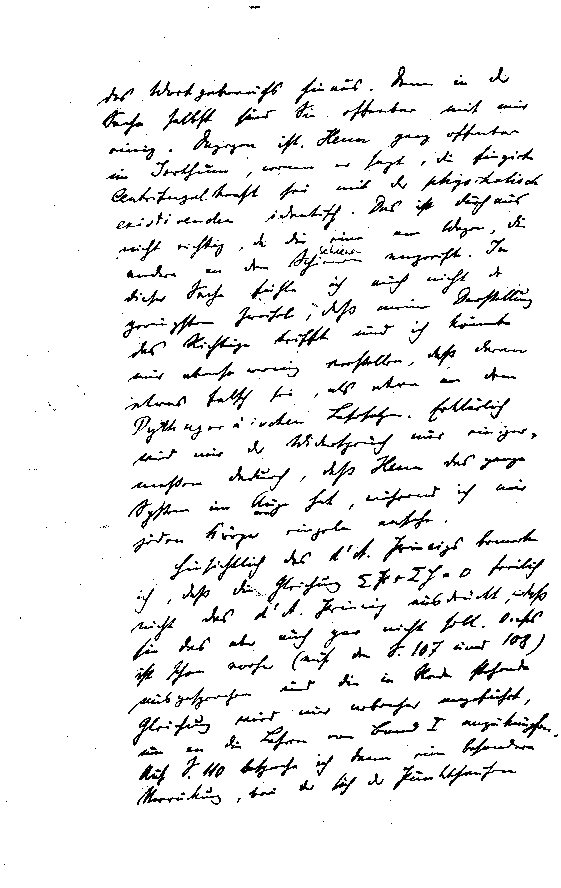 des Wortgebrauchs hinaus. Denn in der
Sache selbst sind Sie offenbar mit mir
einig. Dagegen ist Heun ganz offenbar
im Irrthum, wenn er sagt, die fingirte
Centrifugalkraft sei mit der physikalisch
existirenden identisch. Das ist durchaus
nicht richtig, da die eine am Wagen, die
andere an den Schienen angreift. In
dieser Sache fühle ich auch nicht den
geringsten Zweifel, daß meine Darstellung
das Richtige trifft und ich könnte
mir ebenso wenig vorstellen, daß daran
etwas falsch sei, als etwa an dem
Pythagoräischen Lehrsatze. Erklärlich
wird mir der Widerspruch nur einiger-
maßen dadurch, daß Heun das ganze
System im Auge hat, während ich mir
jeden Körper einzeln ansehe.
Hinsichtlich des d'A. Princips bemerke
ich, daß die Gleichung Σ P + Σ J = 0 freilich
nicht das d'A. Princip ausdrückt, daß
sie das aber auch gar nicht soll.
ist schon vorher (auf den S. 107 und 108)
ausgesprochen und die in Rede stehende
Gleichung wird nur nebenher angeführt,
um an die Lehren von Band I anzuknüpfen.
Auf S. 110 bespreche ich dann eine besondere
Verrückung, bei der sich der Punkthaufen